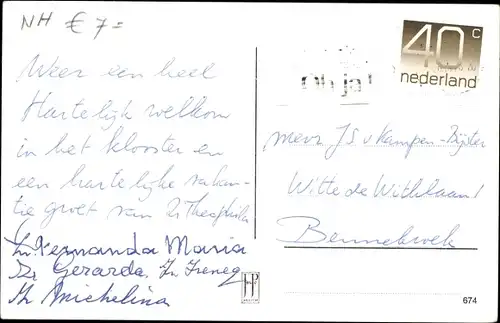 NH € 7=
40 c
nederland
Oh ja!
Weer een heel
Hartelijk welkom
in het klooster en
een hartelijke vakan-
tie groet van Zr Theophila
Zr. Fernanda Maria
Zr Gerarda, Zr Ireneq
Zr Michelina
mevr JS v Kampen-Bijster
Witte de Withlaan
Bennebroek
HP
674